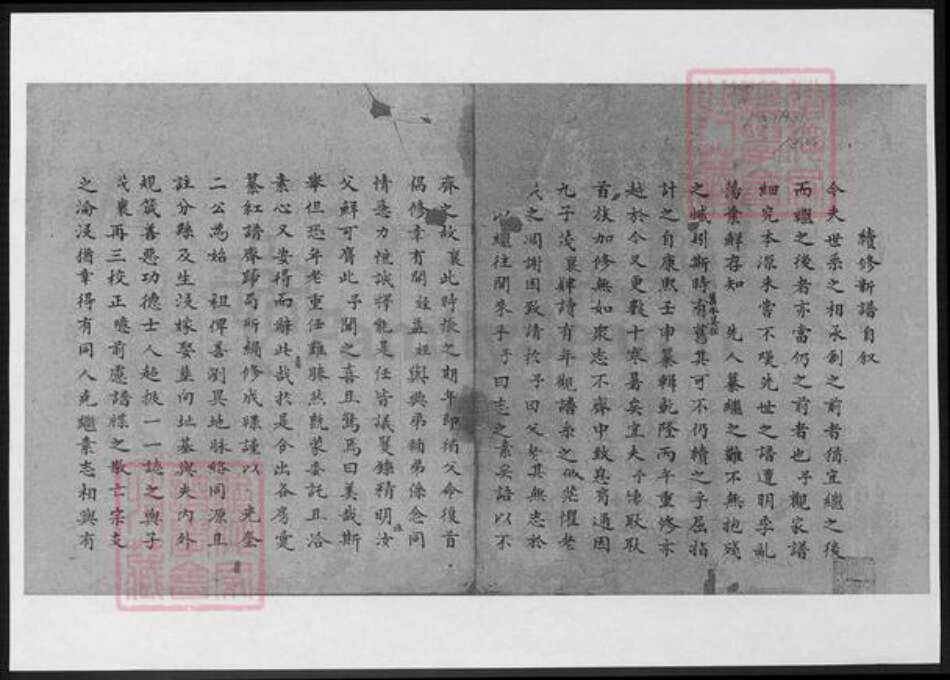 續修新譜自叙
今夫世系之相承創之前者猶宜繼之後
而繼之後者亦當仍之前者也予觀家譜
細究本源未嘗不嘆先世之譜遭明季亂
蕩棄鮮存知 先人纂繼之難不無抱殘
之憾則斯時有舊其可不仍續之乎屈指
計之自康熙壬申纂輯乾隆丙午重修亦
越於今又更數十寒暑矣宜夫予怫耿耿
首族加修無如眾志不齊中致息肩適因
九予茂襄肆讀有年觀譜系之茫懼老
之凋謝因致請於予曰父老其無志於
以繼往開來乎予曰志之素矣語以不
齊之故襄此時恨之期年即稍父命復首
倡修幸有開姪益姪與興弟輔弟條念同
情急力愧誠擇能是任皆議夏錄精明汝
父鮮可膺此予聞之喜且驚焉曰美哉斯
舉但恐年老重任難勝然既蒙委託且洽
素心又安得而辭此哉於是合出各房虔
纂紅譜齊歸局所續修成牒謹以光奎
二公為始 祖俾善瀏異地脉絡同源且
註分縣及生沒嫁娶墓向址基與夫內外
規箴善惡功德士人超拔一一誌之與子
茂襄再三校正噫前慮譜牒之散亡宗支
之淪沒猶幸得有同人克繼素志相與有